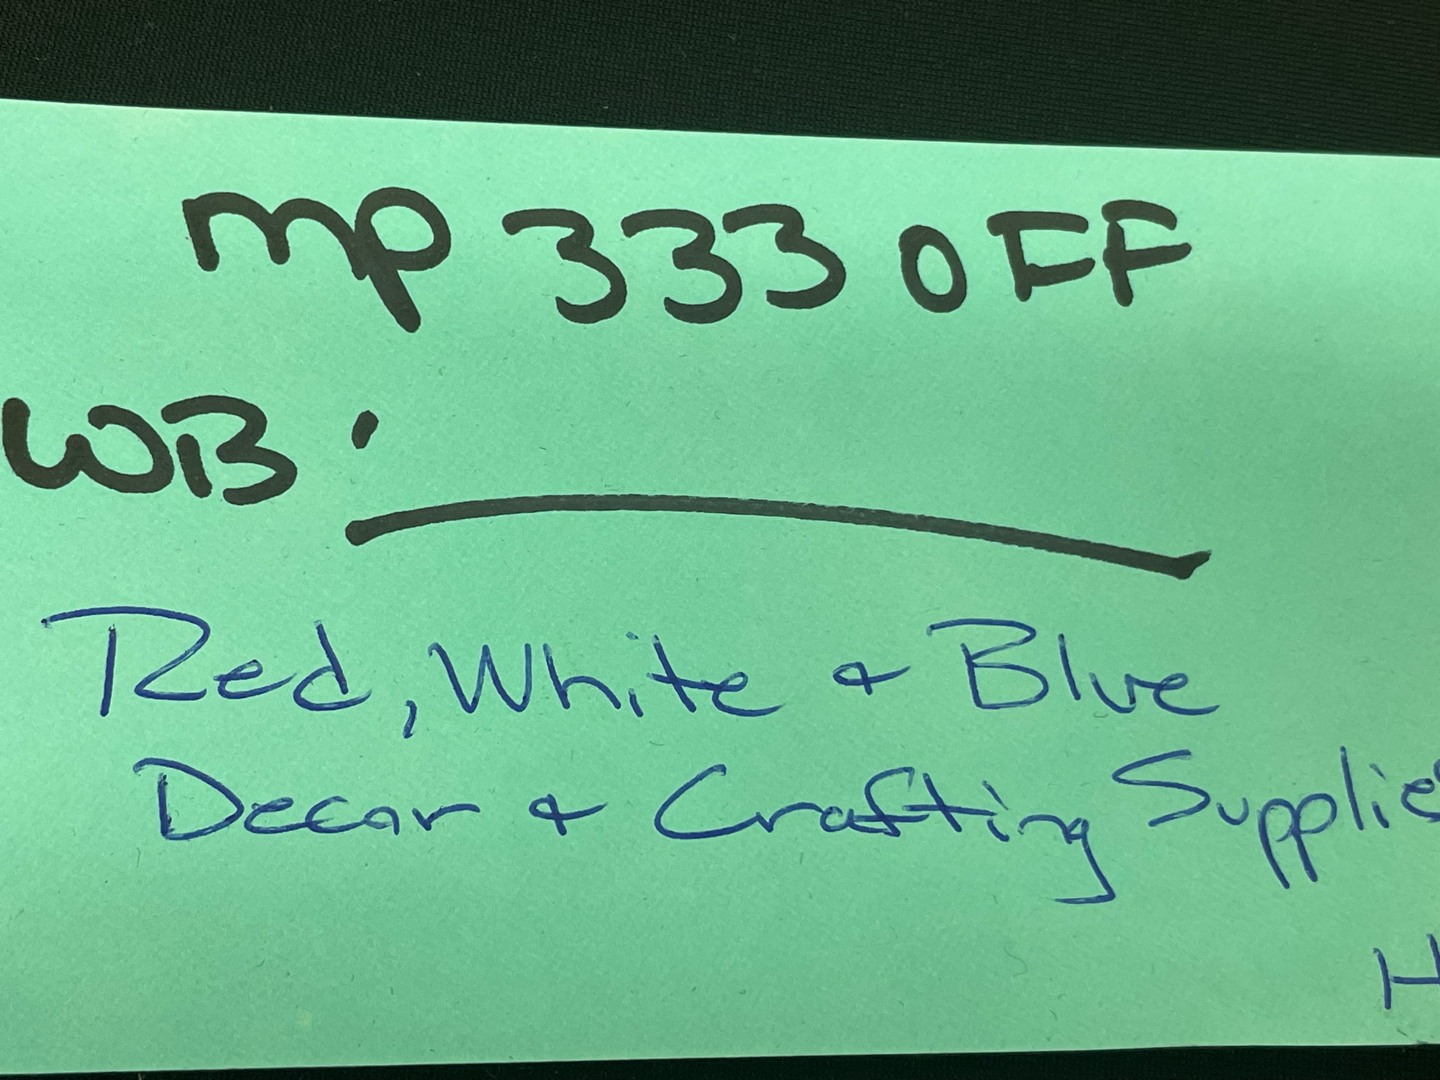 mp 333 OFF
WB:
Red, White & Blue
Decor & Crafting Supplies
H